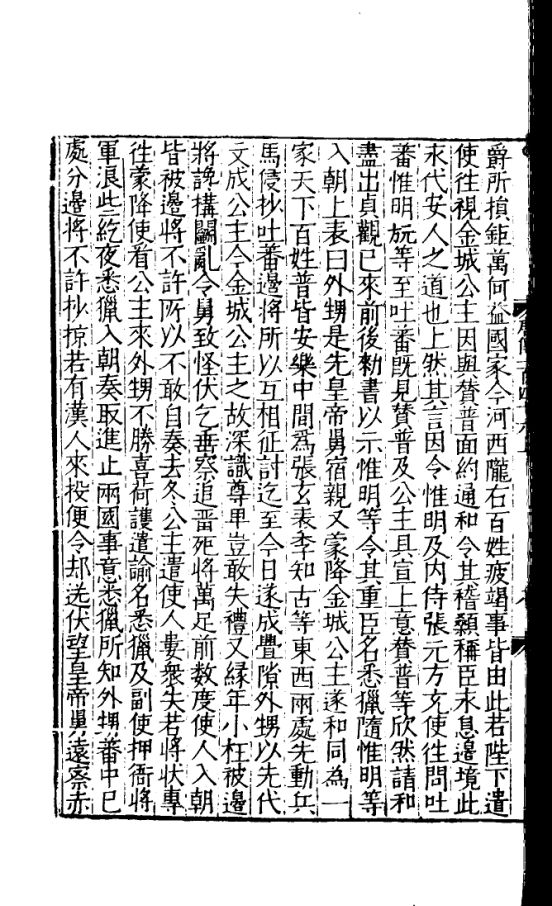 爵所損鉅萬何益國家今河西隴右百姓疲竭事皆由此若陛下遣
使往視金城公主因與贊普面約通和令其稽顙稱臣永息邊境此
永代安人之道也上然其言因令惟明及內侍張元方充使往問吐
蕃惟明元等至吐蕃旣見贊普及公主具宣上意贊普等欣然請和
盡出貞觀已來前後勑書以示惟明等令其重臣名悉獵隨惟明等
入朝上表曰外甥是先皇帝舅宿親又蒙降金城公主遂和同為一
家天下百姓普皆安樂中間爲張玄表李知古等東西兩處先動兵
馬侵抄吐蕃邊將所以互相征討迄至今日遂成釁隙外甥以先代
文成公主今金城公主之故深識尊卑豈敢失禮又緣年小枉被邊
將讒搆鬬亂令舅致怪伏乞垂察追畱死將萬足前數度使人入朝
皆被邊將不許所以不敢自奏去冬公主遣使人婁衆失若將狀專
往蒙降使看公主來外甥不勝喜荷謹遣諭名悉獵及副使押衙將
軍浪些紇夜悉獵入朝奏取進止兩國事意悉獵所知外甥蕃中已
處分邊將不許抄掠若有漢人來投便令却送伏望皇帝舅遠察赤